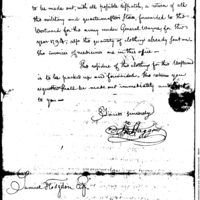 to be made out, with all possible dispatch, a return of all
the military and quartermaster Stores, forwarded to the
Westward for the army under General Wayne for the
year 1794, also the quantity of clothing already sent on
the invoices of medicines are in this office
The residue of the clothing for the Westward
is to be packed up and forwarded. The return you
request shall be made out immediately and
to you
Yours sincerely
Samuel Hodgdon Esq.